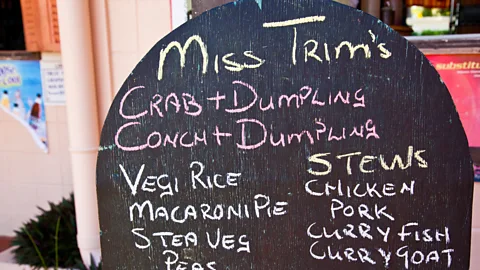 Miss Trim's
Crab + Dumpling
Conch + Dumpling
Vegi Rice
Macaroni Pie
Stea Veg
Peas
Stews
Chicken
Pork
Curry Fish
Curry Goat
substitu